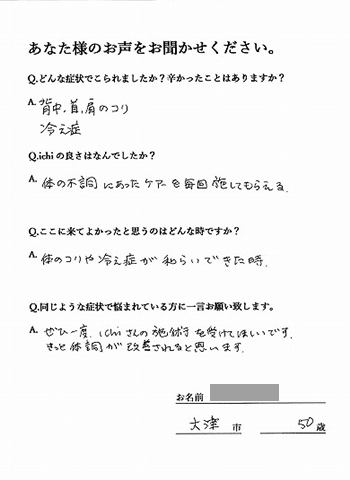 あなた様のお声をお聞かせください。
Q.どんな症状でこられましたか？辛かったことはありますか？
A. 背中、首、肩のコリ
冷え症
Q.ichiの良さはなんでしたか？
A. 体の不調にあったケアーを毎回施してもらえる。
Q.ここに来てよかったと思うのはどんな時ですか？
A. 体のコリや冷え症が和らいできた時。
Q.同じような症状で悩まれている方に一言お願い致します。
A. ぜひ一度、ichiさんの施術を受けてほしいです。
きっと体調が改善されると思います。
お名前
大津 市 50 歳